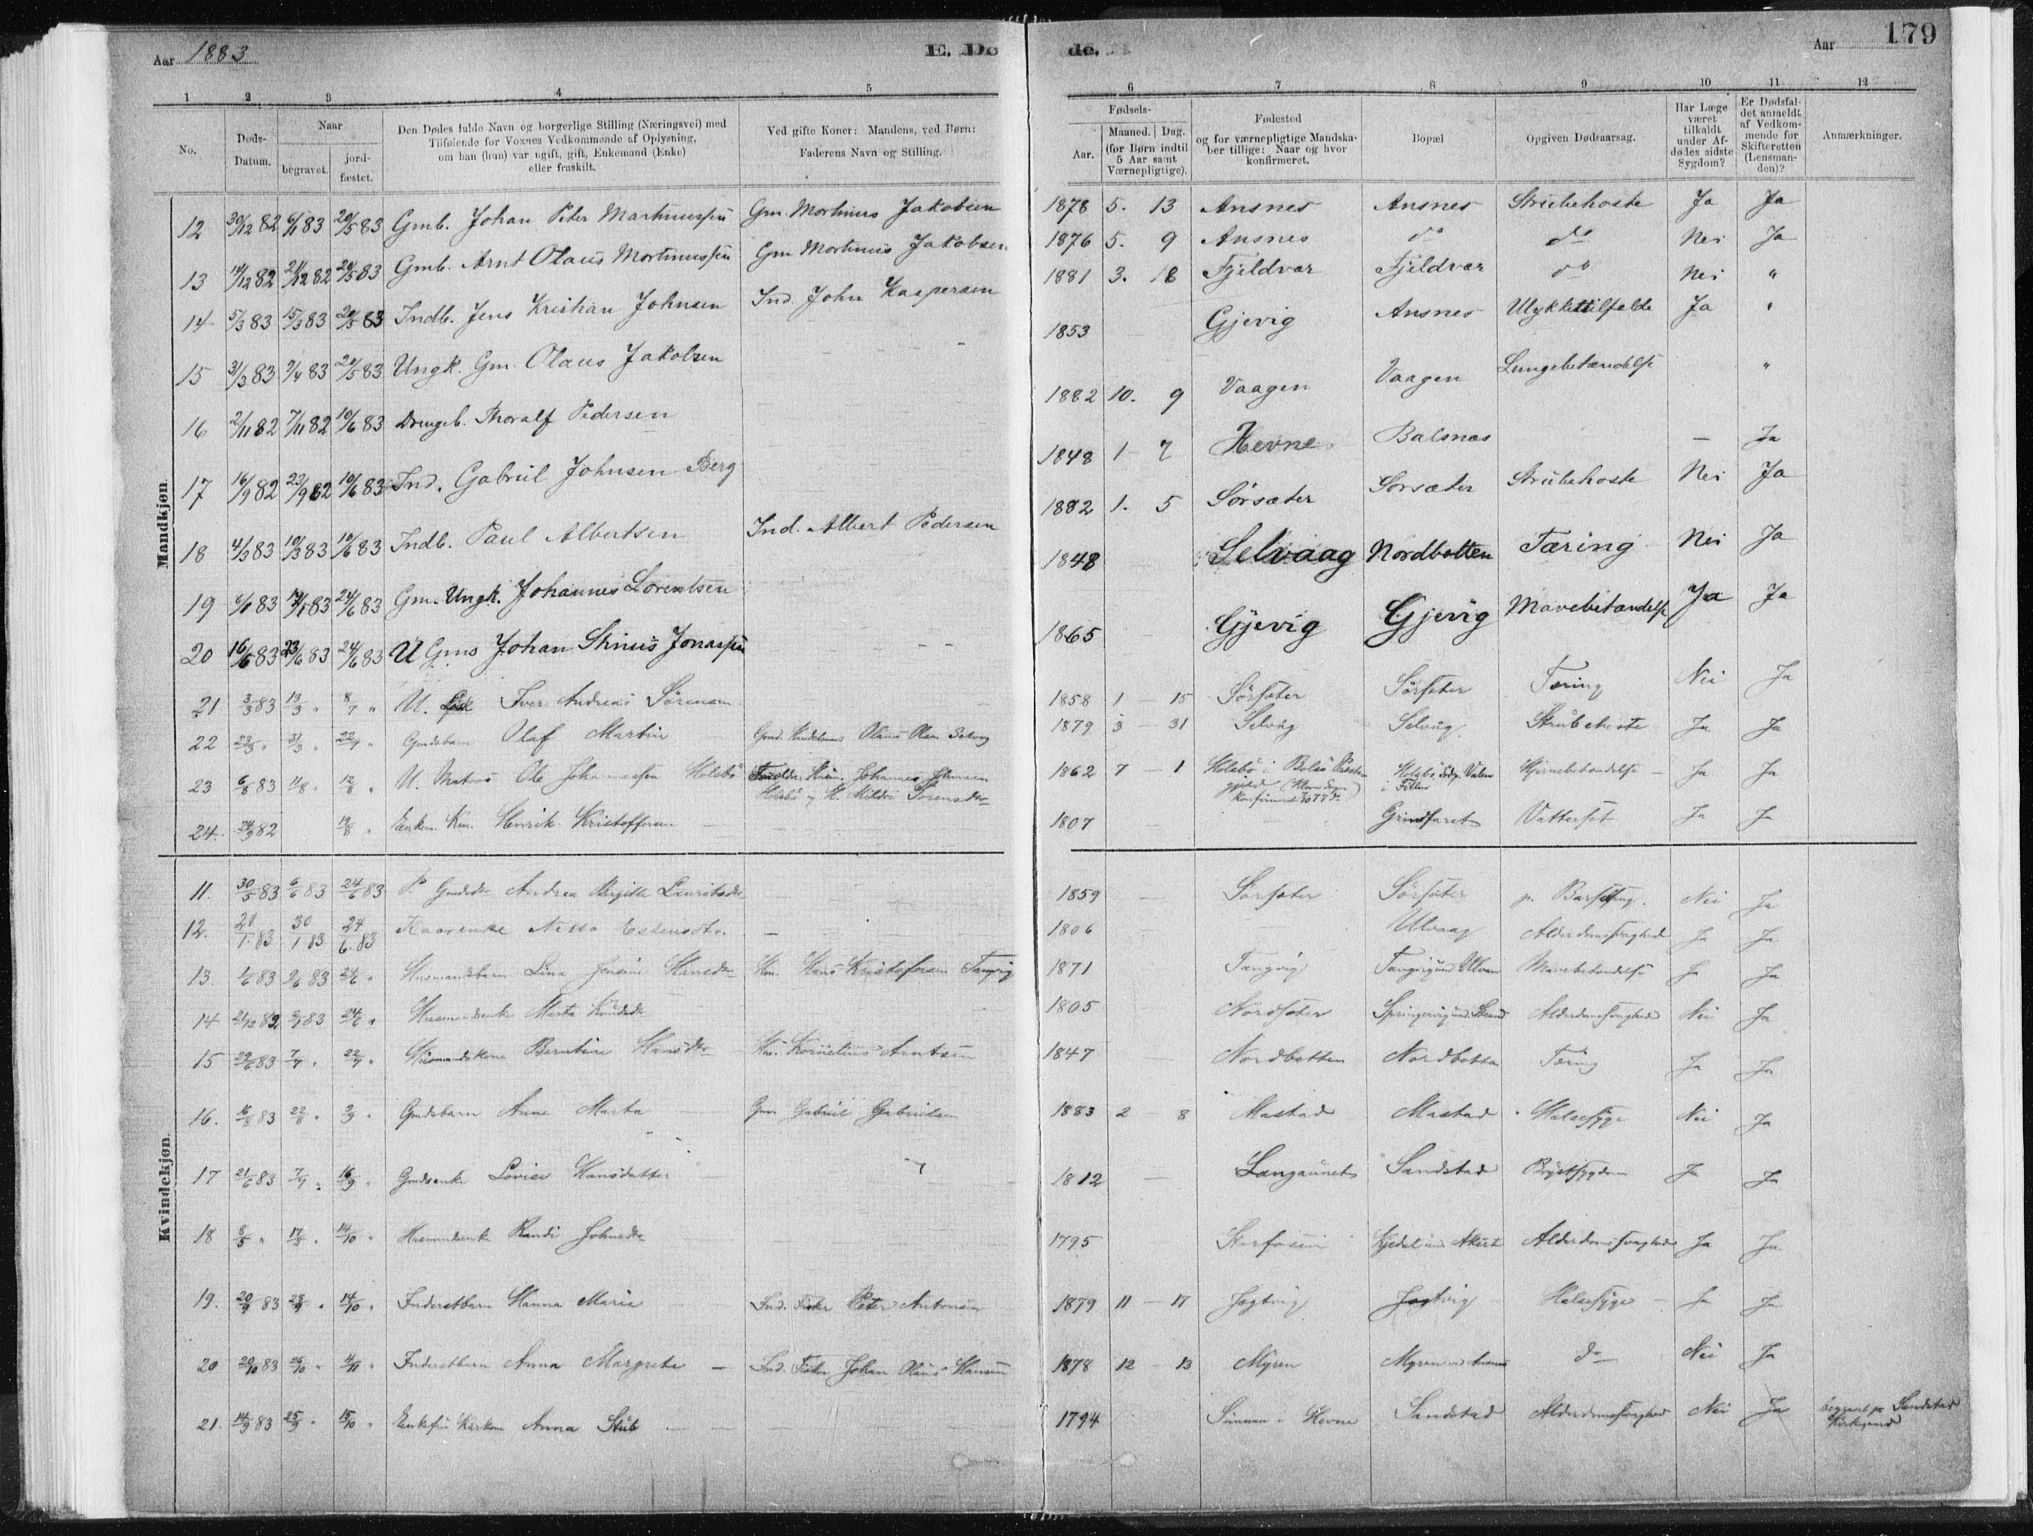 Aar 1883
E. Dø
de.
Aar
179
1 2 3 4 5 6 7 8 9 10 11 12
No.
Døds-Datum.
Naar
begravet.
jord-fæstet.
Den Dødes fulde Navn og borgerlige Stilling (Næringsvei) med
Tilføiende for Voxnes Vedkommende af Oplysning,
om han (hun) var ugift, gift, Enkemand (Enke)
eller fraskilt.
Ved gifte Koner: Mandens, ved Børn:
Faderens Navn og Stilling.
Fødsels-
Aar.
Maaned. Dag.
(for Børn indtil
5 Aar samt
Værnepligtige).
Fødested
og for værnepligtige Mandska-
ber tillige: Naar og hvor
konfirmeret.
Bopæl
Opgiven Dødsaarsag.
Har Læge
været
tilkaldt
under Af-
dødes sidste
Sygdom?
Er Dødsfal-
det anmeldt
af Vedkom-
mende for
Skifteretten
(Lensman-
den)?
Anmærkninger.
Mandkjøn.
12 30/12 82 6/1 83 20/5 83 Gmb. Johan Peder Martinussen Gm. Mortinus Jakobsen 1878 5. 13 Ansnes Ansnes Strubehoste Ja Ja
13 14/12 82 21/12 82 20/5 83 Gmb. Arnt Olaus Mortinussen Gm Mortinus Jakobsen 1876 5. 9 Ansnes do do Nei Ja
14 5/3 83 15/3 83 20/5 83 Indb. Jens Kristian Johnsen Ind. John Kaspersen 1881 3. 18 Fjeldvær Fjeldvær do Nei "
15 31/3 83 9/4 83 20/5 83 Ungk. Gm. Olaus Jakobsen 1853 Gjevig Ansnes Ulykkestilfælde Ja "
16 2/11 82 7/11 82 10/6 83 Drengeb. Thoralf Pedersen 1882 10. 9 Vaagen Vaagen Lungebetændelse "
17 16/9 82 23/9 82 10/6 83 Ind. Gabriel Johnsen Berg 1848 1 7 Hevne Balsnes — Ja
18 4/3 83 10/3 83 10/6 83 Indb. Paul Albertsen Ind. Albert Pedersen 1882 1. 5 Sörsæter Sorsæter Strubehoste Nei Ja
19 6/1 83 14/1 83 24/6 83 Gm. Ungk. Johannes Lorentsen 1848 Selvaag Nordbotten Tæring Nei Ja
20 16/6 83 23/6 83 24/6 83 U Gms Johan Stinus Jonassen 1865 Gjevig Gjevig Mavebetændelse Ja Ja
21 3/3 83 13/3 " 8/7 " U. Iver Andreas Sörensen 1858 1 15 Sörsæter Sörsæter Tæring Nei Ja
22 23/3 " 31/3 " 22/7 " Gmdsbarn Olaf Martin 1879 3 31 Selvåg Selvåg Strubehoste Ja Ja
23 6/8 83 11/8 " 12/8 " U. Matros Ole Johannessen Holsbö Johannes Johnsen 1862 7 — 1 Holsbö i Ja Ja
24. 24/9 82 12/8 " Enkem. Km. Henrik Kristoffersen 1807 Grindfaret Vattersot Ja Ja
Kvindekjøn.
11. 30/5 83 6/6 83 24/6 83 P. Andrea Birgitte Lauritsdtr 1859 Sörsæter Sörsæter p. Barselseng. Nei Ja
12. 21/1 83 30/1 83 24/6 83 Kaarenke — 1806 Ulvaag Alderdomssvaghed Ja Ja
13. 1/6 83 9/6 83 24/6 " Husmandsbarn Lina Jensine Hansdtr Hm. Hans Kristofersen Tangvig 1871 Tangvig Mavebetændelse Ja Ja
14 21/10 82 83 24/6 " Husmandsenke Marta Knudsdtr 1805 Nordsæter Alderdomssvaghed Nei Ja
15 29/6 83 7/7 " 22/7 " Husmandskone Berntine Hansdtr Hm. Kornelius Arntsen 1847 Nordbotten Nordbotten Tæring Ja Ja
16. 16/8 83 22/8 " 2/9 " Gmdsbarn Anne Marta Gm. Gabriel Gabrielsen 1883 2 8 Mastad Mastad Halssyge Nei Ja
17 21/6 83 7/7 " 16/9 " Gmdsenke Lovise Hansdatter 1812 Langaunet Sandstad Brystsygdom Ja Ja
18 8/5 " 17/5 " 14/10 " Husmandsenke Randi Johnsdtr 1795 Storfosen Alderdomssvaghed Ja Ja
19. 20/9 83 28/9 " 14/10 " Inderstbarn Hanna Marie Ind. Fisker Peter Antonsen 1879 11 — 17 Jøgtvig Jøgtvig Halssyge Ja Ja
20 20/10 83 26/10 " 4/11 " Inderstbarn Anna Margrete — Ind. Fisker Johan Olaus Hansen 1878 12 — 13 Myren Myren ved Ansnes do Nei Ja
21. 14/9 83 25/9 " 15/10 " Anna Stub 1794 Hevne Sandstad Alderdomssvaghed Nei Ja begravet på Sandstad
Kirkegaard